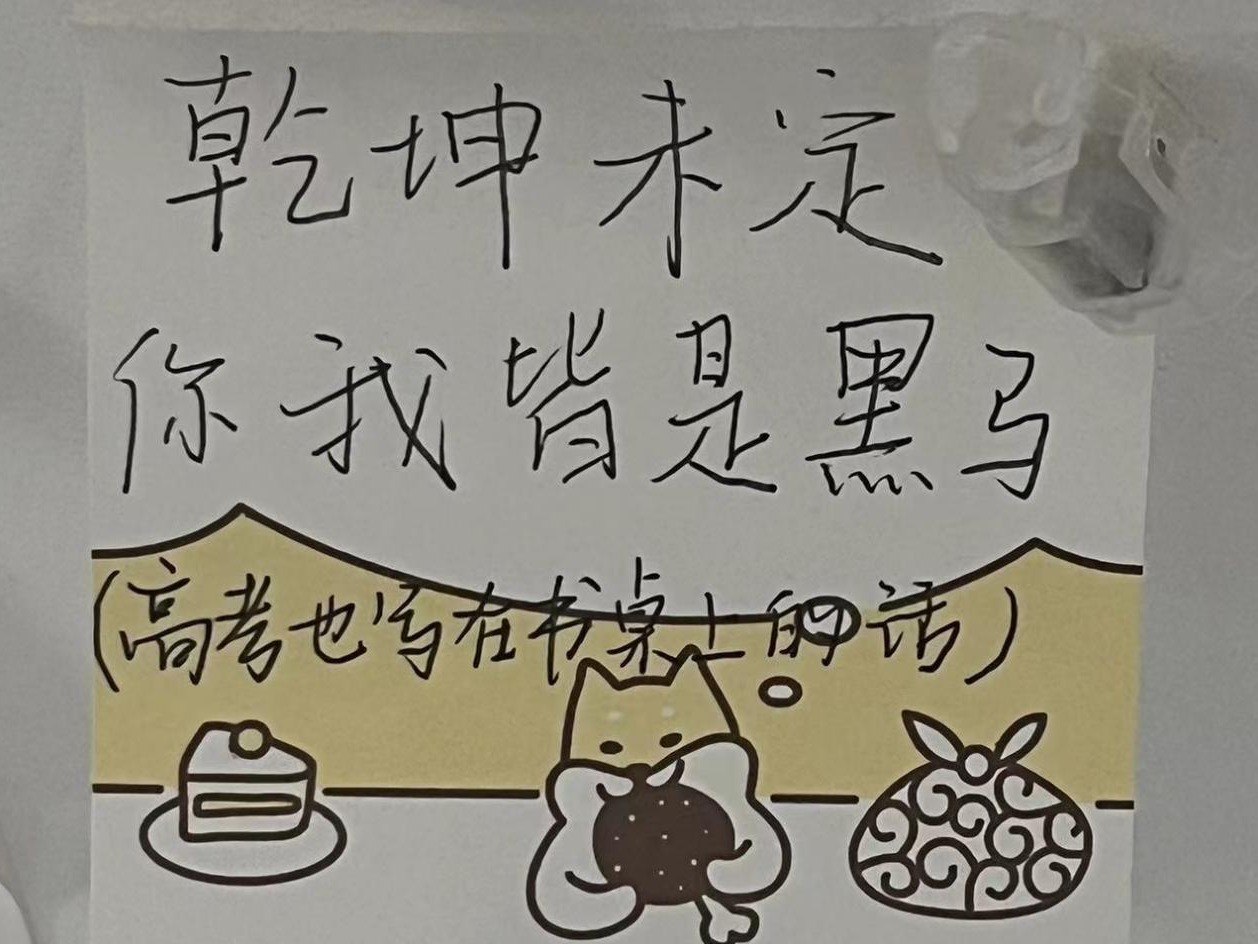 乾坤未定
你我皆是黑马
(高考也写在书桌上的话)